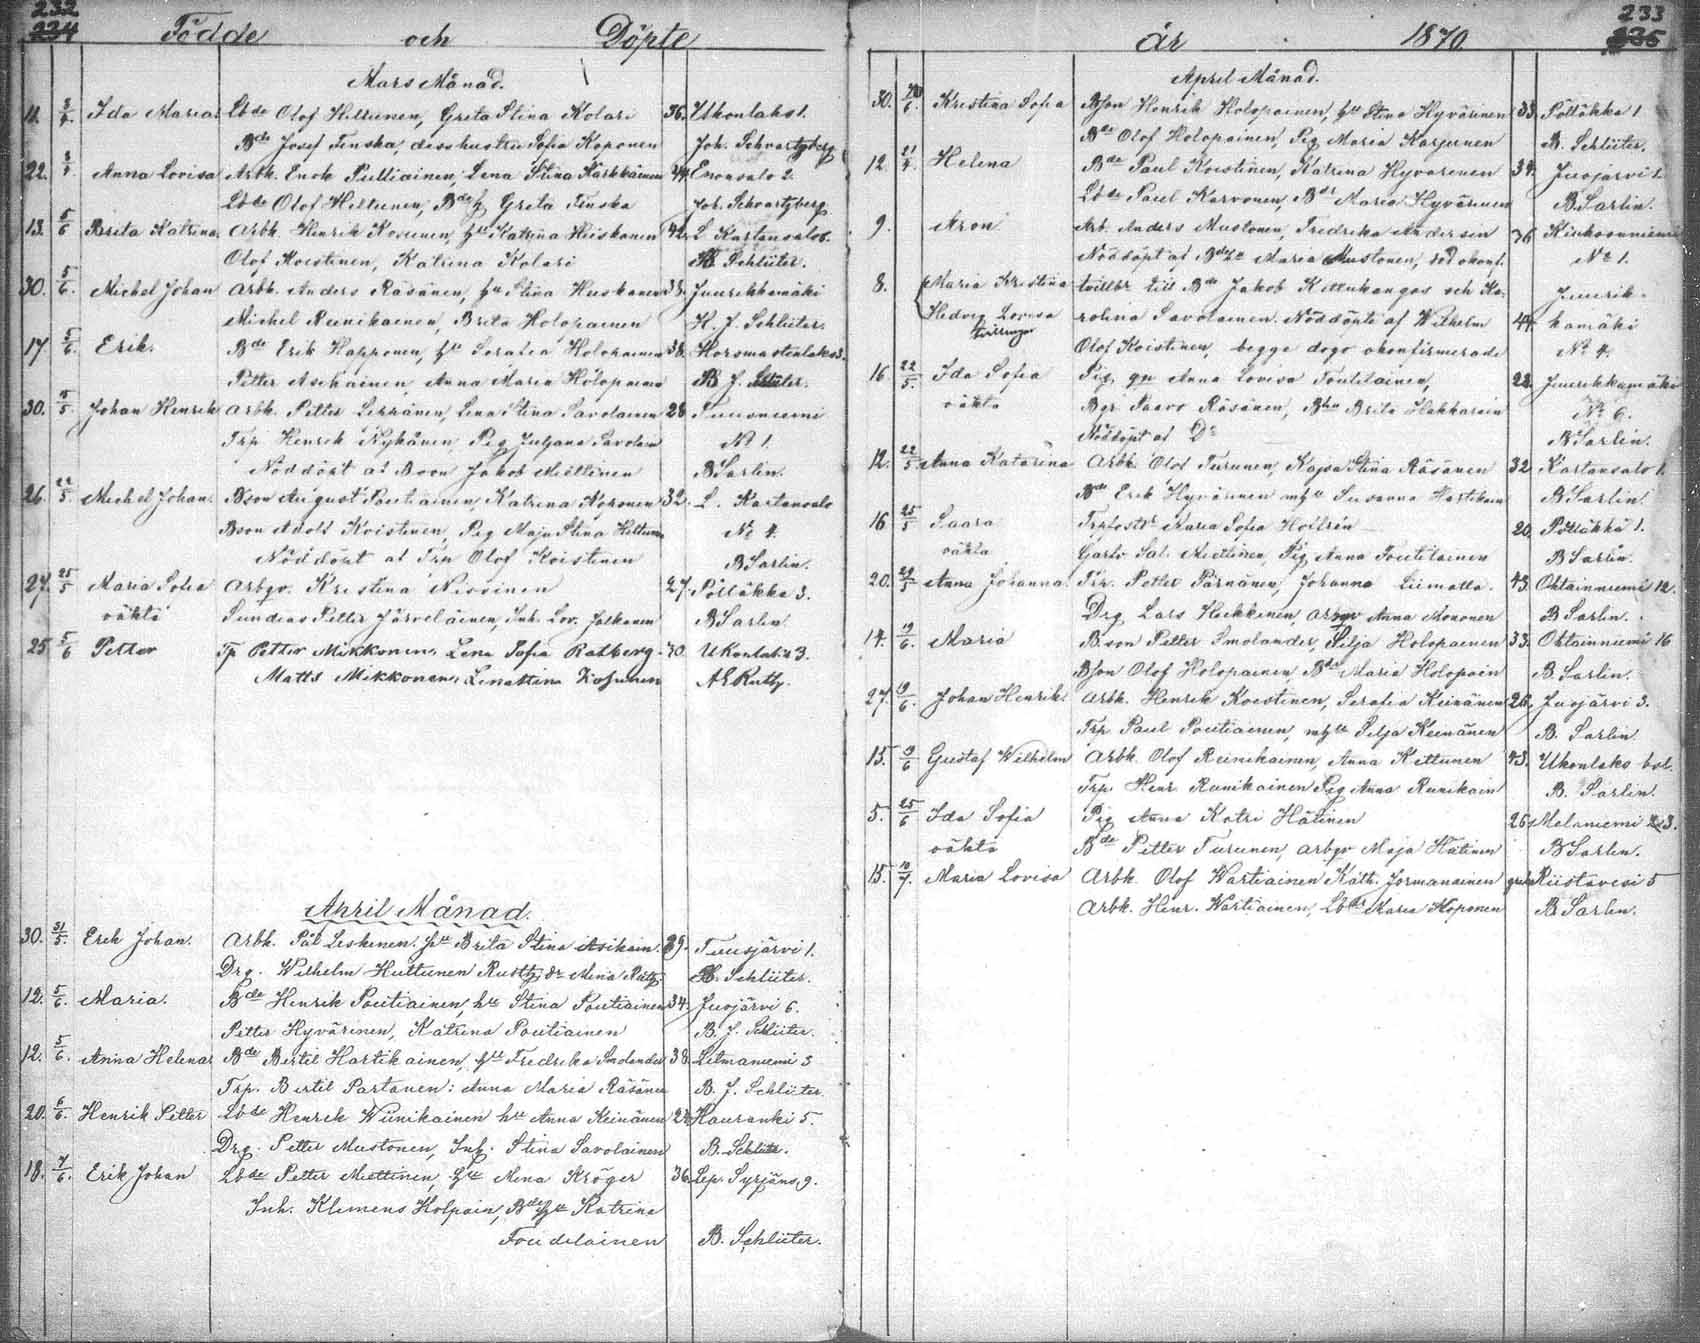 232
234
Födde och Döpte
Mars Månad.
11. 3/4 Ida Maria. Lbde Olof Hiltunen, Greta Stina Kolari 36. Ukonlaks 1.
Bde Josef Tenska, dess hustru Sofia Koponen Joh. Schvartzberg
22. 3/4 Anna Lovisa Arbk. Enok Pulliainen, Lena Stina Karkkainen 44. Enonsalo 2
Lbde Olof Hiltunen, Bde h. Greta Tenska Joh. Schvartzberg
13. 5/6 Brita Katrina Arbk. Henrik Korunen, hu Katrina Hiiskonen 42. L. Kartansalo 8.
Olof Koistinen, Katrina Kolari B. Schlüter.
30. 5/6. Michel Johan Arbk. Anders Räsänen, hu Stina Huskonen 38. Juurikkamäki
Michel Reinikainen, Brita Holopainen K. J. Schlüter.
17 5/6. Erik. Bde Erik Happonen, hu Serafia Holopainen 38. Horsmanlaks 3.
Petter Asikainen, Anna Maria Holopainen B J. Schlüter.
30. 15/5 Johan Henrik Arbk. Petter Leskinen, Lena Stina Savolainen 28 Tuusniemi
Trp Henrik Nykänen, Pig Juljana Savolain No 1.
Nöddöpt af Bson Jakob Miettinen B Sarlin.
26. 22/5. Michel Johan. Bson August Poutiainen, Katrina Koponen 32. L. Kartansalo
Bson Adolf Koistinen, Pig Maja Stina Hiltunen No 4.
Nöddöpt af Trp Olof Koistinen B Sarlin.
27. 25/5 Maria Sofia Arbqv. Kristina Nissinen 27. Pölläkkä 3.
oäkta Sundias Petter Järveläinen, Inh. Lov. Jalkanen B Sarlin.
25 5/6 Petter Tp Petter Mikkonen, Lena Sofia Ratberg 30. Ukonlaks 3.
Matts Mikkonen, Lenastina Kosunen A E Ruth.
April Månad.
30. 31/5. Erik Johan. Arbk. Pål Leskinen. hu Brita Stina Asikain. 29. Tuusjärvi 1.
Drg. Wilhelm Huttunen B. Schlüter.
12. 5/6. Maria. Bde Henrik Poutiainen, hu Stina Poutiainen 34. Juojärvi 6.
Petter Hyvärinen, Katrina Poutiainen B. J. Schlüter.
12. 5/6. Anna Helena Bde Bertil Hartikainen, hu Fredrika Smolander 38. Litmaniemi 3
Trp. Bertil Partanen: Anna Maria Räsänen B. J. Schlüter.
20. 6/6. Henrik Petter Lbde Henrik Wiinikainen hu Anna Keinänen 24. Hauranki 5.
Drg. Petter Mustonen, Inh. Stina Savolainen B. Schlüter.
18. 7/6. Erik Johan Lbde Petter Miettinen, hu Anna Kröger 36. Lep. Syrjäns. 9.
Inh. Klemens Holpain, Bde hu Katrina
Toudelainen B. Schlüter.
233
235
år 1870
April Månad.
30. Kristina Sofia Bson Henrik Holopainen, hu Stina Hyvärinen 33. Pölläkkä 1
Bde Olof Holopainen, Pig Maria Karjunen B. Schlüter.
12. 21/4 Helena Bde Paul Koistinen, Katrina Hyvärinen 34. Juojärvi 1.
Lbde Paul Karvonen, Bdr Maria Hyvärinen B. Sarlin.
9. Aron Arb. Anders Mustonen, Fredrika Andersin 36 Kiukoonniemi
Nöddöpt af Maria Mustonen, död okonf. No 1.
8. Maria Kristina tvillbr. till Bde Jakob Kettukangas och Ka- Juurik-
Hedvig Lovisa rolina Savolainen. Nöddöpte af Wilhelm 44. kamäki
tvillingar Olof Koistinen, begge dogo okonfirmerade No 4.
16 22/5. Ida Sofia Pig. Anna Lovisa Toutilainen, 22. Juurikkamäki
oäkta Bgr. Paavo Räsänen, Brita Hakkarain No 6.
Nöddöpt af Do B Sarlin.
12. 22/5 Anna Katarina Arbk. Olof Turunen, Kajsa Stina Räsänen 32 Kartansalo 1.
Bde Erik Hyvärinen m hu Susanna Hartikain B Sarlin.
16 25/5 Saara Maria Sofia Hollsén 20. Pölläkkä 1.
oäkta Garfv. Sal. Miettinen, Pig Anna Toutilainen B Sarlin.
20. 29/5 Anna Johanna. Trp. Petter Pärnänen, Johanna Liimatta. 43. Ohtainniemi 12.
Drg Lars Heikkinen, Arbqv Anna Mononen B Sarlin.
14. 19/6. Maria B.son Petter Smolander, Silja Holopainen 33. Ohtainniemi 16
Bson Olof Holopainen, Bdr Maria Holopain B. Sarlin.
27. 19/6. Johan Henrik. Arbk. Henrik Koistinen, Serafia Keinänen 26. Juojärvi 3.
Trp Paul Poutiainen, m hu Silja Keinänen B. Sarlin
15. 19/6 Gustaf Wilhelm Arbk. Olof Reinikainen, Anna Kettunen 43. Ukonlaks bol.
Trp. Henr. Reinikainen Pig Anna Reinikain B. Sarlin.
5. 25/6 Ida Sofia Pig Anna Katri Hätinen 26. Melaniemi 3.
oäkta Bde Petter Turunen, Arbqv Maja Hätinen B Sarlin.
15. 10/7. Maria Lovisa Arbk. Olof Wartiainen, Kath. Jormanainen Riistavesi 5
Arbk. Henr. Wartiainen, Lbdr Maria Koponen B Sarlin.